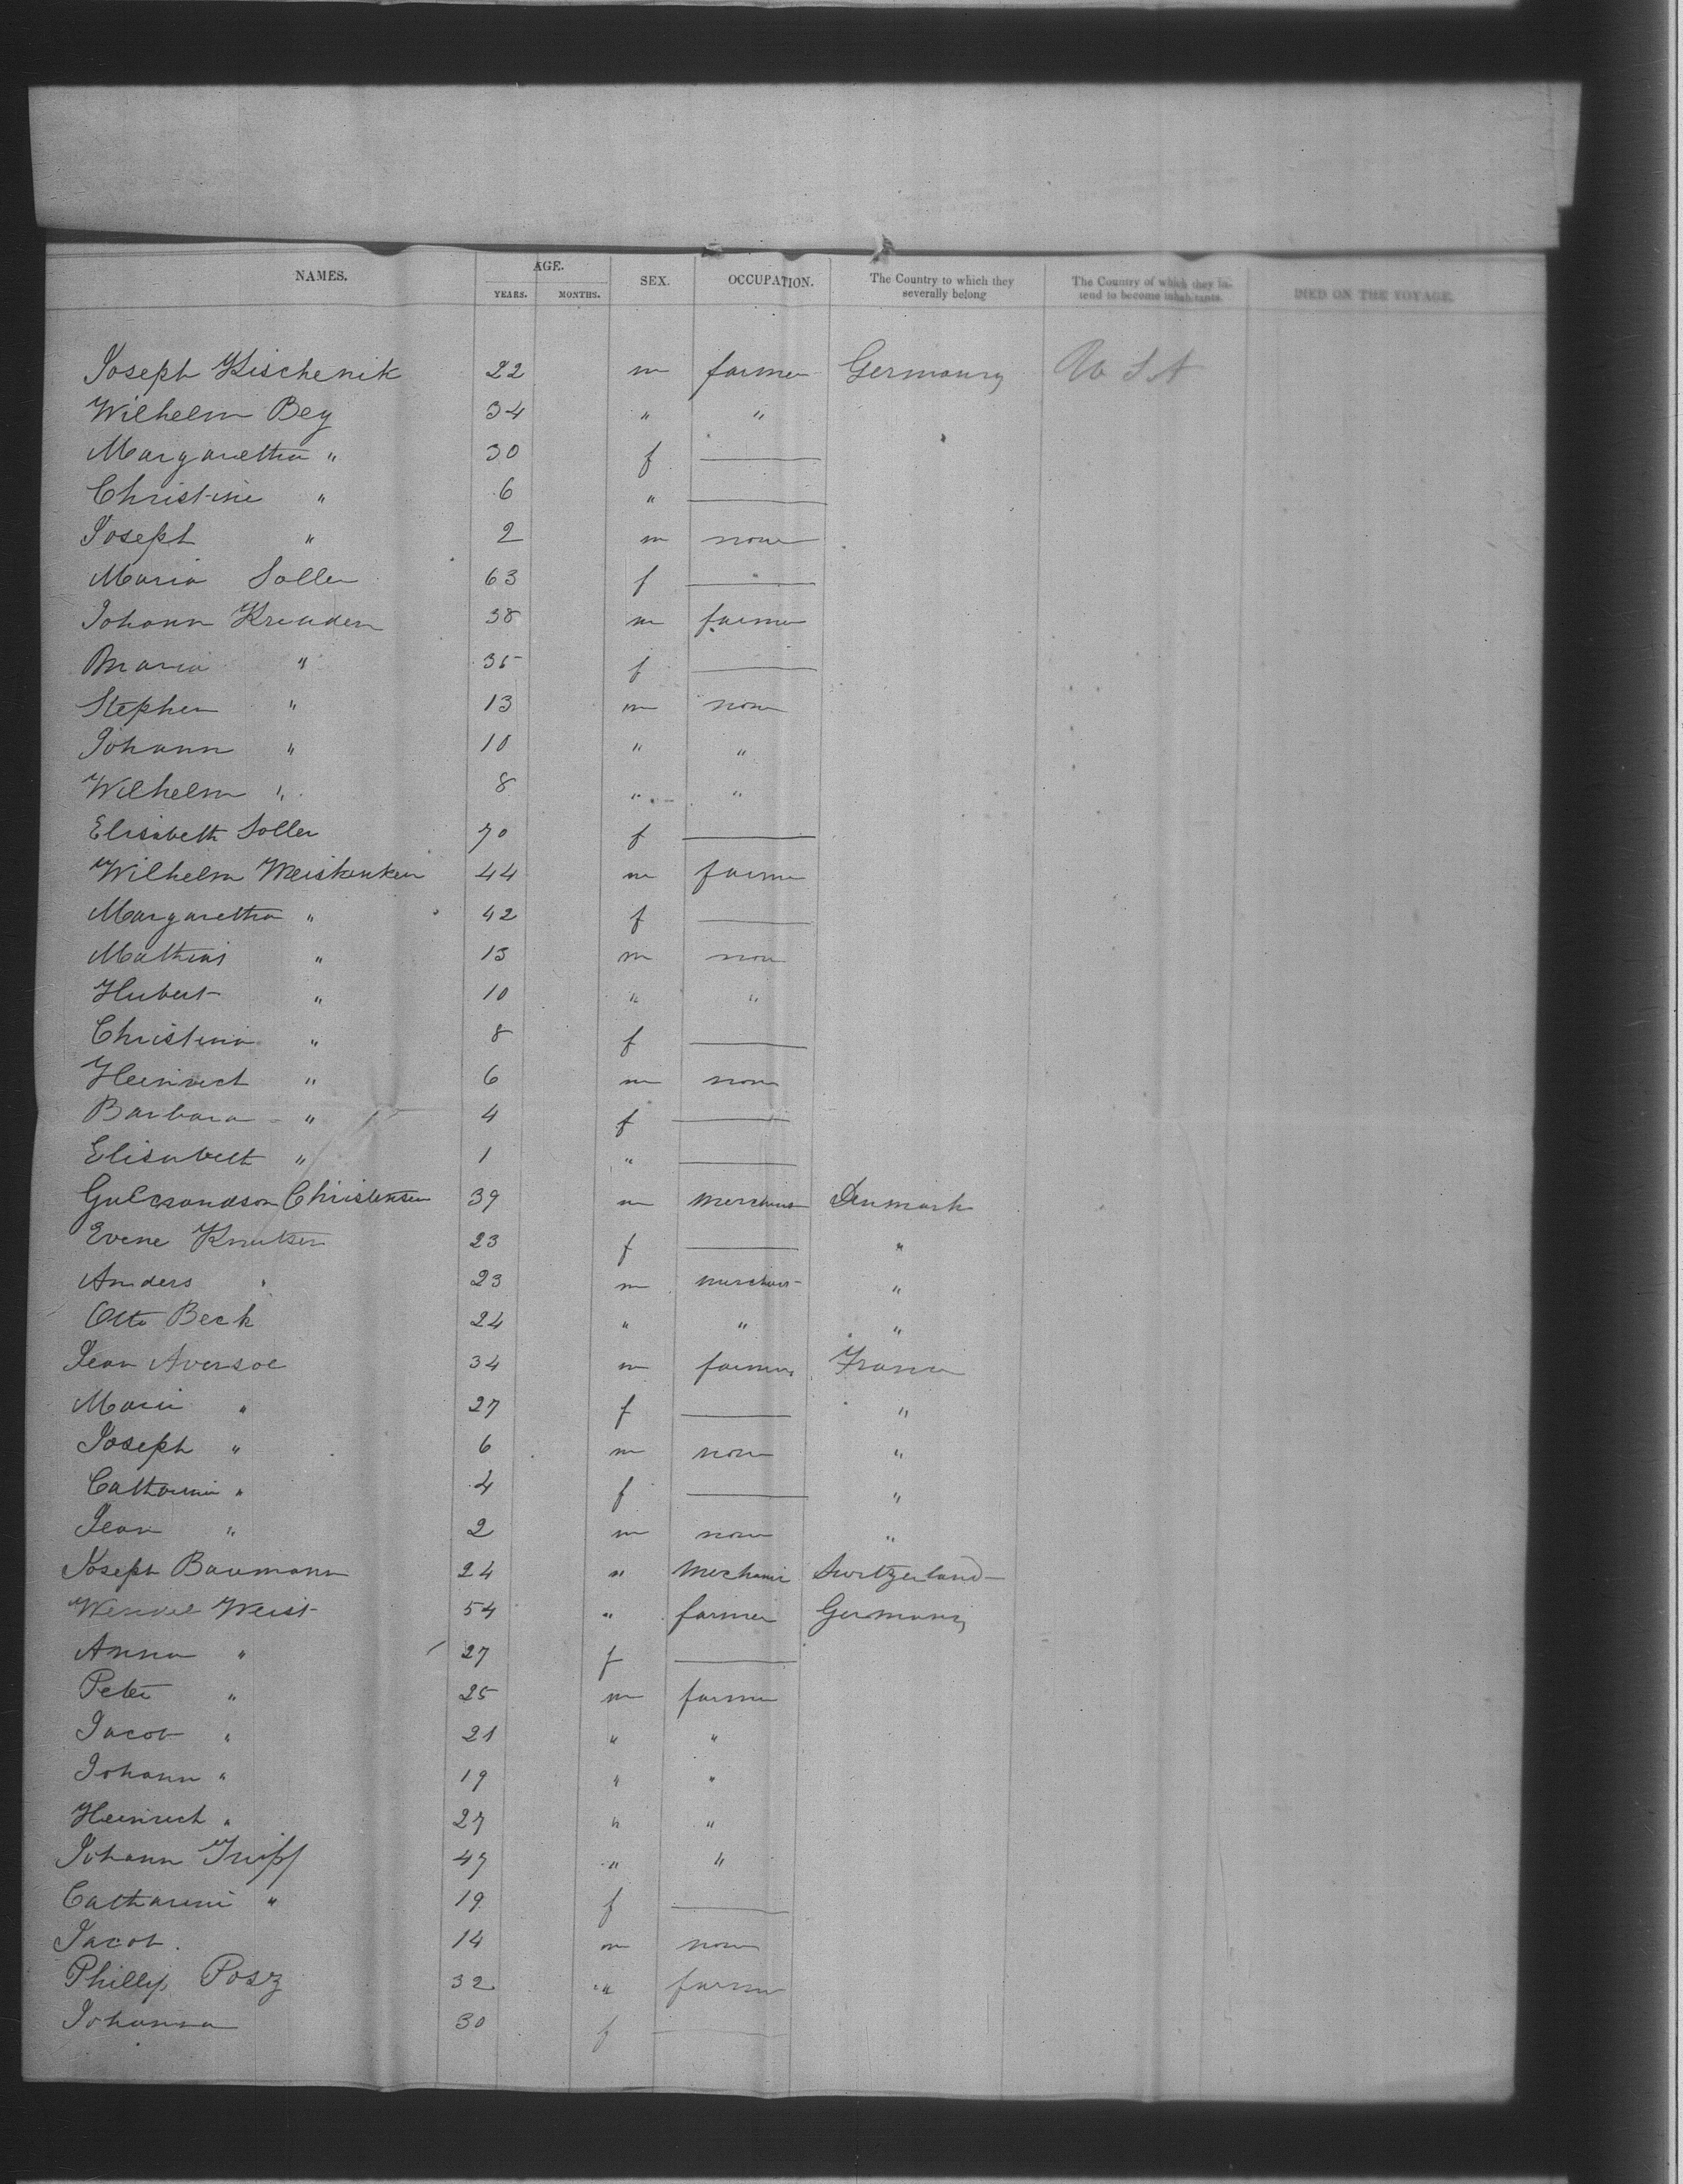 NAMES. AGE. SEX. OCCUPATION. The Country to which they severally belong The Country of which they intend to become inhabitants. DIED ON THE VOYAGE.
YEARS. MONTHS.
Joseph Kischenik 22 m farmer Germany U S A
Wilhelm Bey 34 " "
Margaretha " 30 f
Christine " 6 "
Joseph " 2 m none
Maria Soller 63 f
Johann Kreuden 38 m farmer
Maria " 35 f
Stephen " 13 m none
Johann " 10 " "
Wilhelm " 8 " "
Elisabeth Soller 70 f
Wilhelm 44 m farmer
Margaretha " 42 f
Mathias " 13 m none
Hubert " 10 " "
Christina " 8 f
Heinrich " 6 m none
Barbara " 4 f
Elisabeth " 1 "
Christensen 39 m merchant Denmark
Evene Knutsen 23 f "
Anders " 23 m merchant "
Otto Beck 24 " " "
Jean Aversoe 34 m farmer France
Marie " 27 f "
Joseph " 6 m none "
Catharine " 4 f "
Jean " 2 m none "
Joseph Baumann 24 " Mechanic Switzerland
Weist 54 " farmer Germany
Anna " 27 f
Peter " 25 m farmer
Jacob " 21 " "
Johann " 19 " "
Heinrich " 27 " "
Johann 47 " "
Catharine " 19 f
Jacob 14 m none
Phillip Posz 32 " farmer
Johanna 30 f